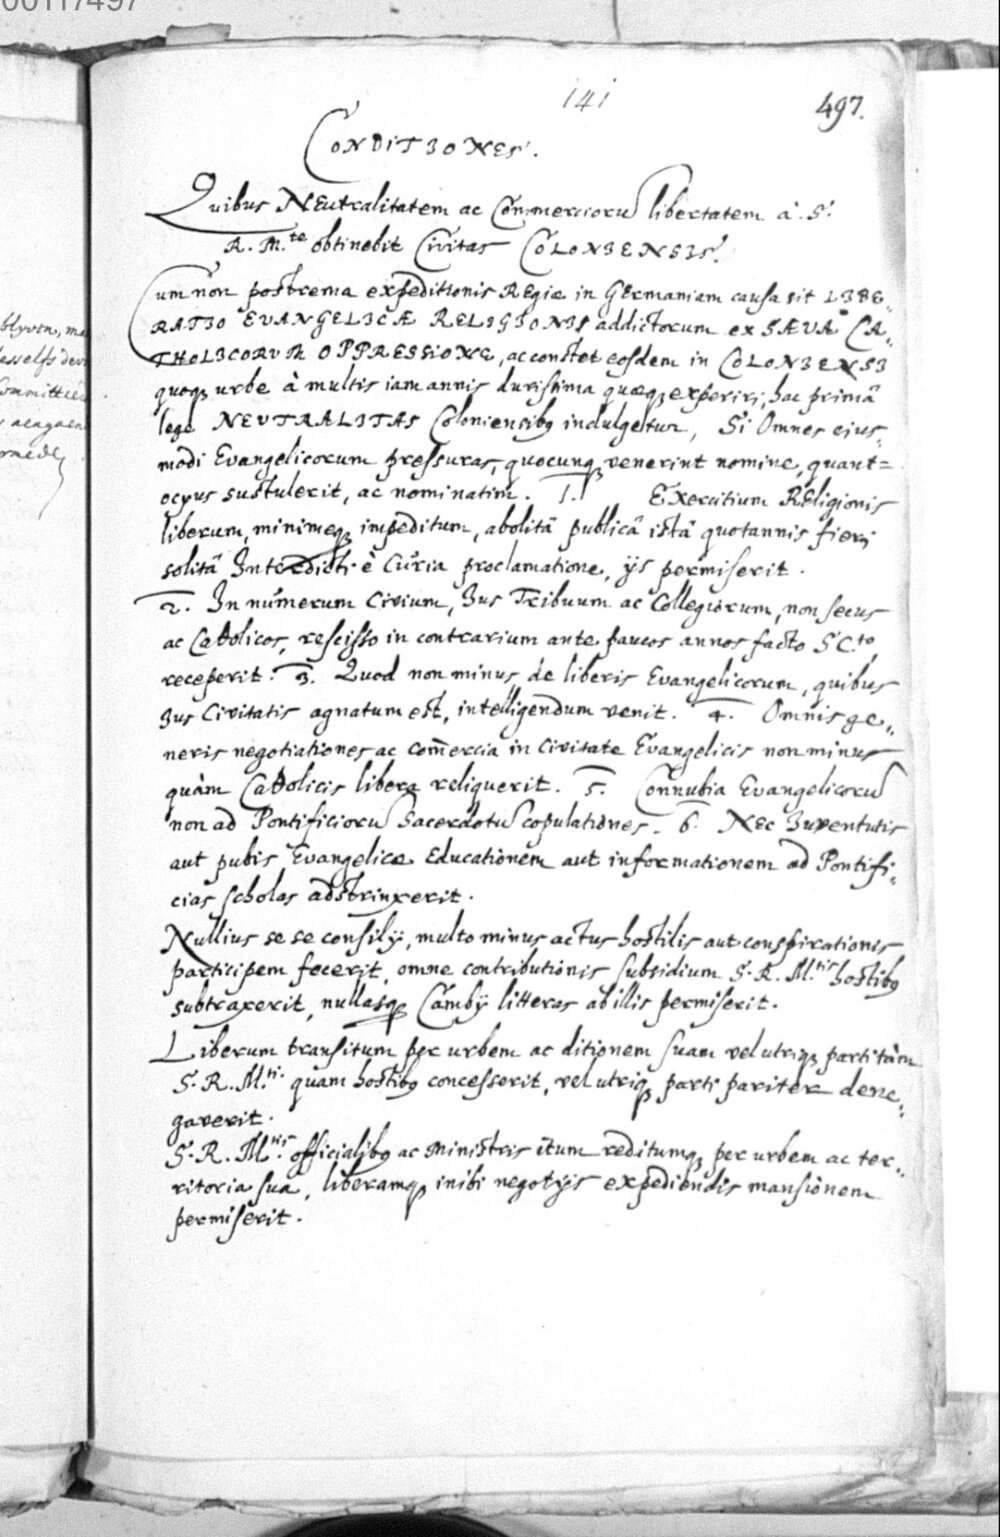 00117497
141
497.
CONDITIONES.
Quibus NEutralitatem ac Commerciorū libertatem à S.
R. M.te obtinebit Civitas COLONIENSIS.
Cum non postrema expeditionis REgiæ in GErmaniam causa sit LIBE„
RATIO EVANGELICÆ RELIGIONIS addictorum ex SÆVA CA„
THOLICORVM OPPRESSIONE, ac constet eosdem in COLONIENSI
quoq urbe à multis iam annis durissima quæq experiri, hac primâ
lege NEVTRALITAS Coloniensibq indulgetur, Si Omnes eius„
modi Evangelicorum pressuras, quocunq venerint nomine, quant=
ocyus sustulerit, ac nominatim. 1. EXercitium REligionis
liberum, minimeq impeditum, abolitâ publicâ istâ quotannis fieri
solitâ Interdicti è Curia proclamatione, ijs permiserit.
2. In numerum Civium, Ius Tribuum ac Collegiorum, non secus
ac Catholicos, rescisso in contrarium ante paucos annos facto SC.to,
receperit. 3. Quod non minus de liberis Evangelicorum, quibus
Ius Civitatis agnatum est, intelligendum venit. 4. Omnis ge„
neris negotiationes ac comercia in Civitate Evangelicis non minus
quàm Catholicis libera reliquerit. 5. Connubia Evangelicorū
non ad Pontificiorū Sacerdotū copulationes. 6. NEc Iuventutis
aut pubis Evangelicæ Educationem aut informationem ad Pontifi„
cias scholas adstrinxerit.
Nullius se se consilij, multo minus actus hostilis aut conspirationis
participem fecerit, omne contributionis subsidium S. R. M.tis hostibq
subtraxerit, nullasq Cambij litteras ab illis permiserit.
Liberum transitum per urbem ac ditionem suam vel utriq parti tàm
S. R. M.ti quam hostibq concesserit, vel utriq parti pariter dene„
gaverit.
S. R. M.tis officialibq ac Ministris itum reditumq per urbem ac ter„
ritoria sua, liberamq inibi negotijs expediendis mansionem
permiserit.